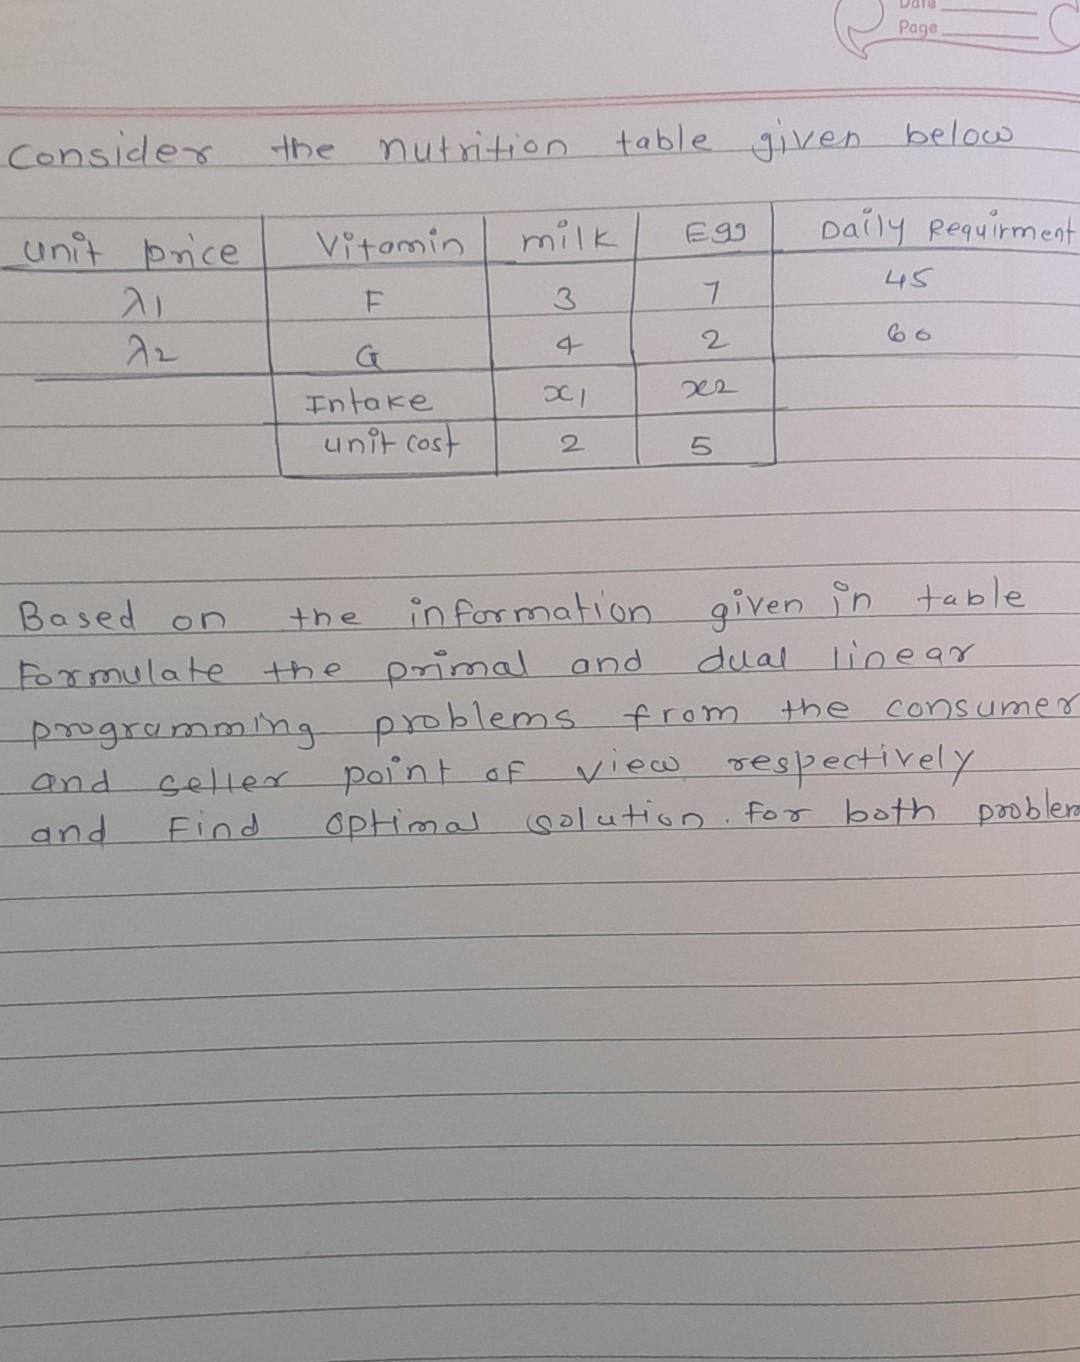 Data
Page
Consider the nutrition table given below
unit price Vitamin milk Egg Daily Requirment
λ1 F 3 7 45
λ2 G 4 2 60
Intake x1 x2
unit cost 2 5
Based on the information given in table
Formulate the primal and dual linear
programming problems from the consumer
and seller point of view respectively
and Find optimal solution. for both problem